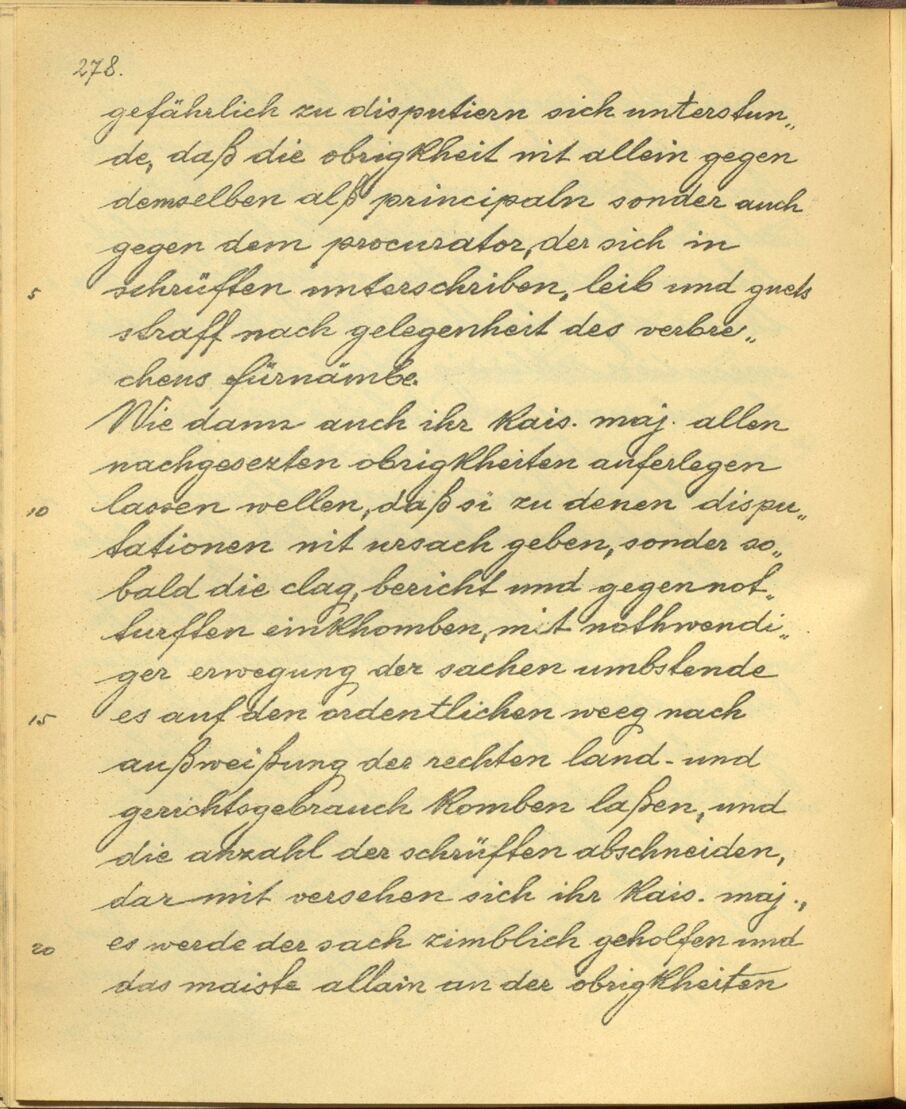 278.
gefährlich zu disputiern sich unterstun„
de, daß die obrigkheit nit allein gegen
demselben alß principaln sonder auch
gegen dem procurator, der sich in
5 schrüften unterschriben, leib und guets
straff nach gelegenheit des verbre„
chens fürnämbe.
Wie dann auch ihr kais. maj. allen
nachgesezten obrigkheiten auferlegen
10 lassen wellen, daß si zu denen dispu„
tationen nit ursach geben, sonder so„
bald die clag, bericht und gegennot„
turften einkhomben, mit nothwendi„
ger erwegung der sachen umbstende
15 es auf den ordentlichen weeg nach
außweißung der rechten land- und
gerichtsgebrauch komben laßen, und
die anzahl der schrüften abschneiden,
dar mit versehen sich ihr kais. maj.,
20 es werde der sach zimblich geholfen und
das maiste allain an der obrigkheiten